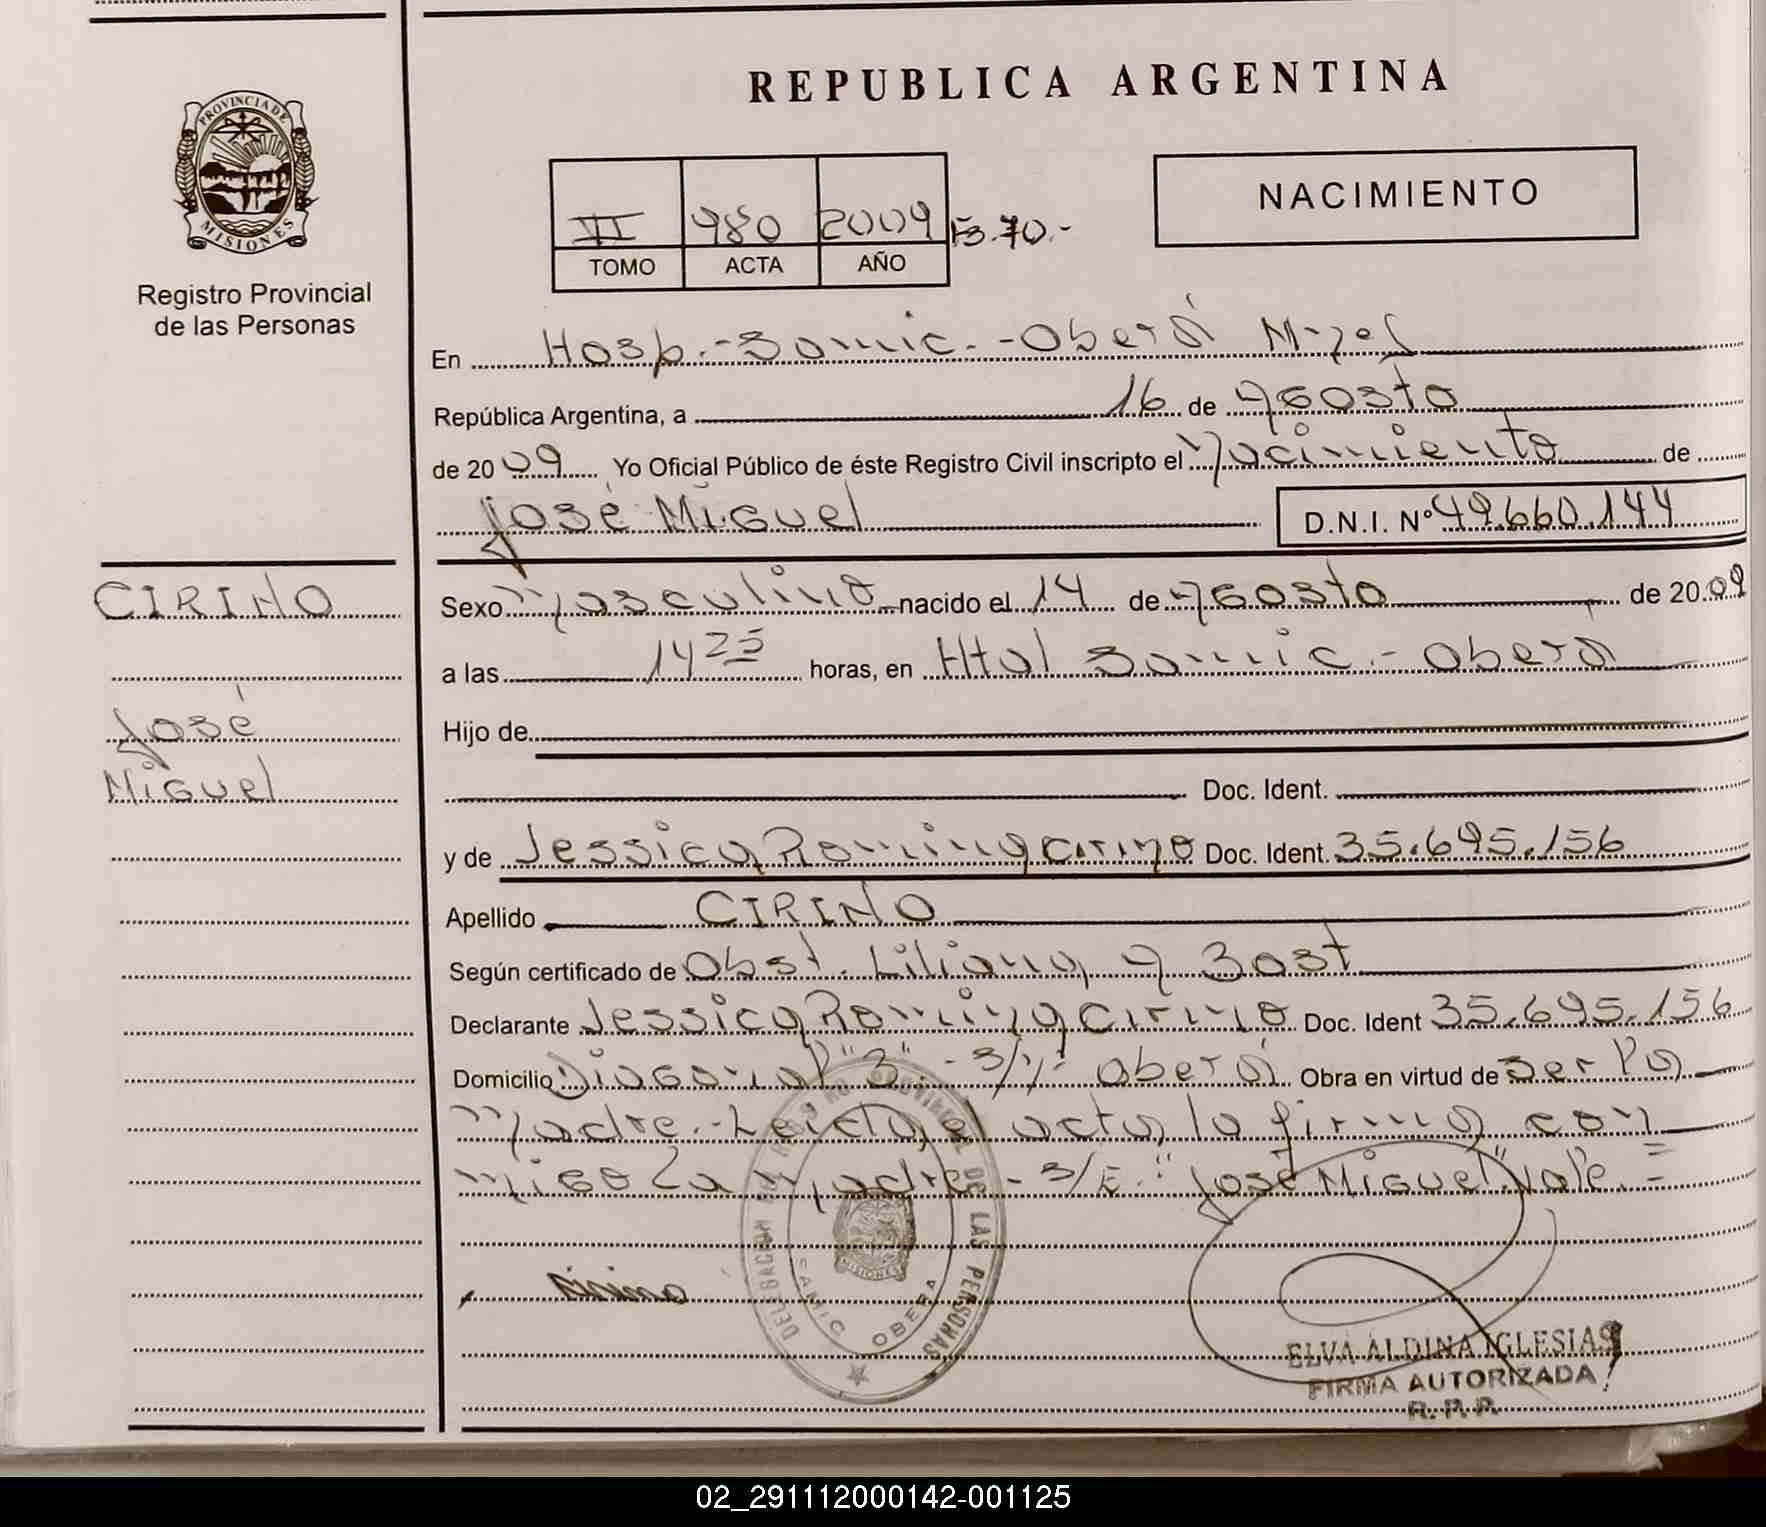 REPUBLICA ARGENTINA
PROVINCIA DE
MISIONES
Registro Provincial
de las Personas
II 980 2009
TOMO ACTA AÑO
NACIMIENTO
En Hosp.-Samic.-Oberá Mnes
República Argentina, a 16 de agosto
de 2009 Yo Oficial Público de éste Registro Civil inscripto el Nacimiento de
José Miguel D.N.I. Nº 49.660.144
CIRINO
José
Miguel
Sexo Masculino nacido el 14 de agosto de 2009
a las 14 25 horas, en Htal Samic.- Oberá
Hijo de
Doc. Ident.
y de Jessica Romina Cirino Doc. Ident. 35.695.156
Apellido CIRINO
Según certificado de Obst. Liliana
Declarante Jessica Romina Cirino Doc. Ident 35.695.156
Domicilio Diagonal "3" - S/Nº Oberá. Obra en virtud de Ser la
Madre.-Leida el acta la firma con
migo La Madre - S/E. "José Miguel" Vale.=
Cirino
DELEGACION DEL REG. PROVINCIAL DE LAS PERSONAS
MISIONES
SAMIC OBERA
ELVA ALDINA IGLESIAS
FIRMA AUTORIZADA
R. P. P.
02_291112000142-001125